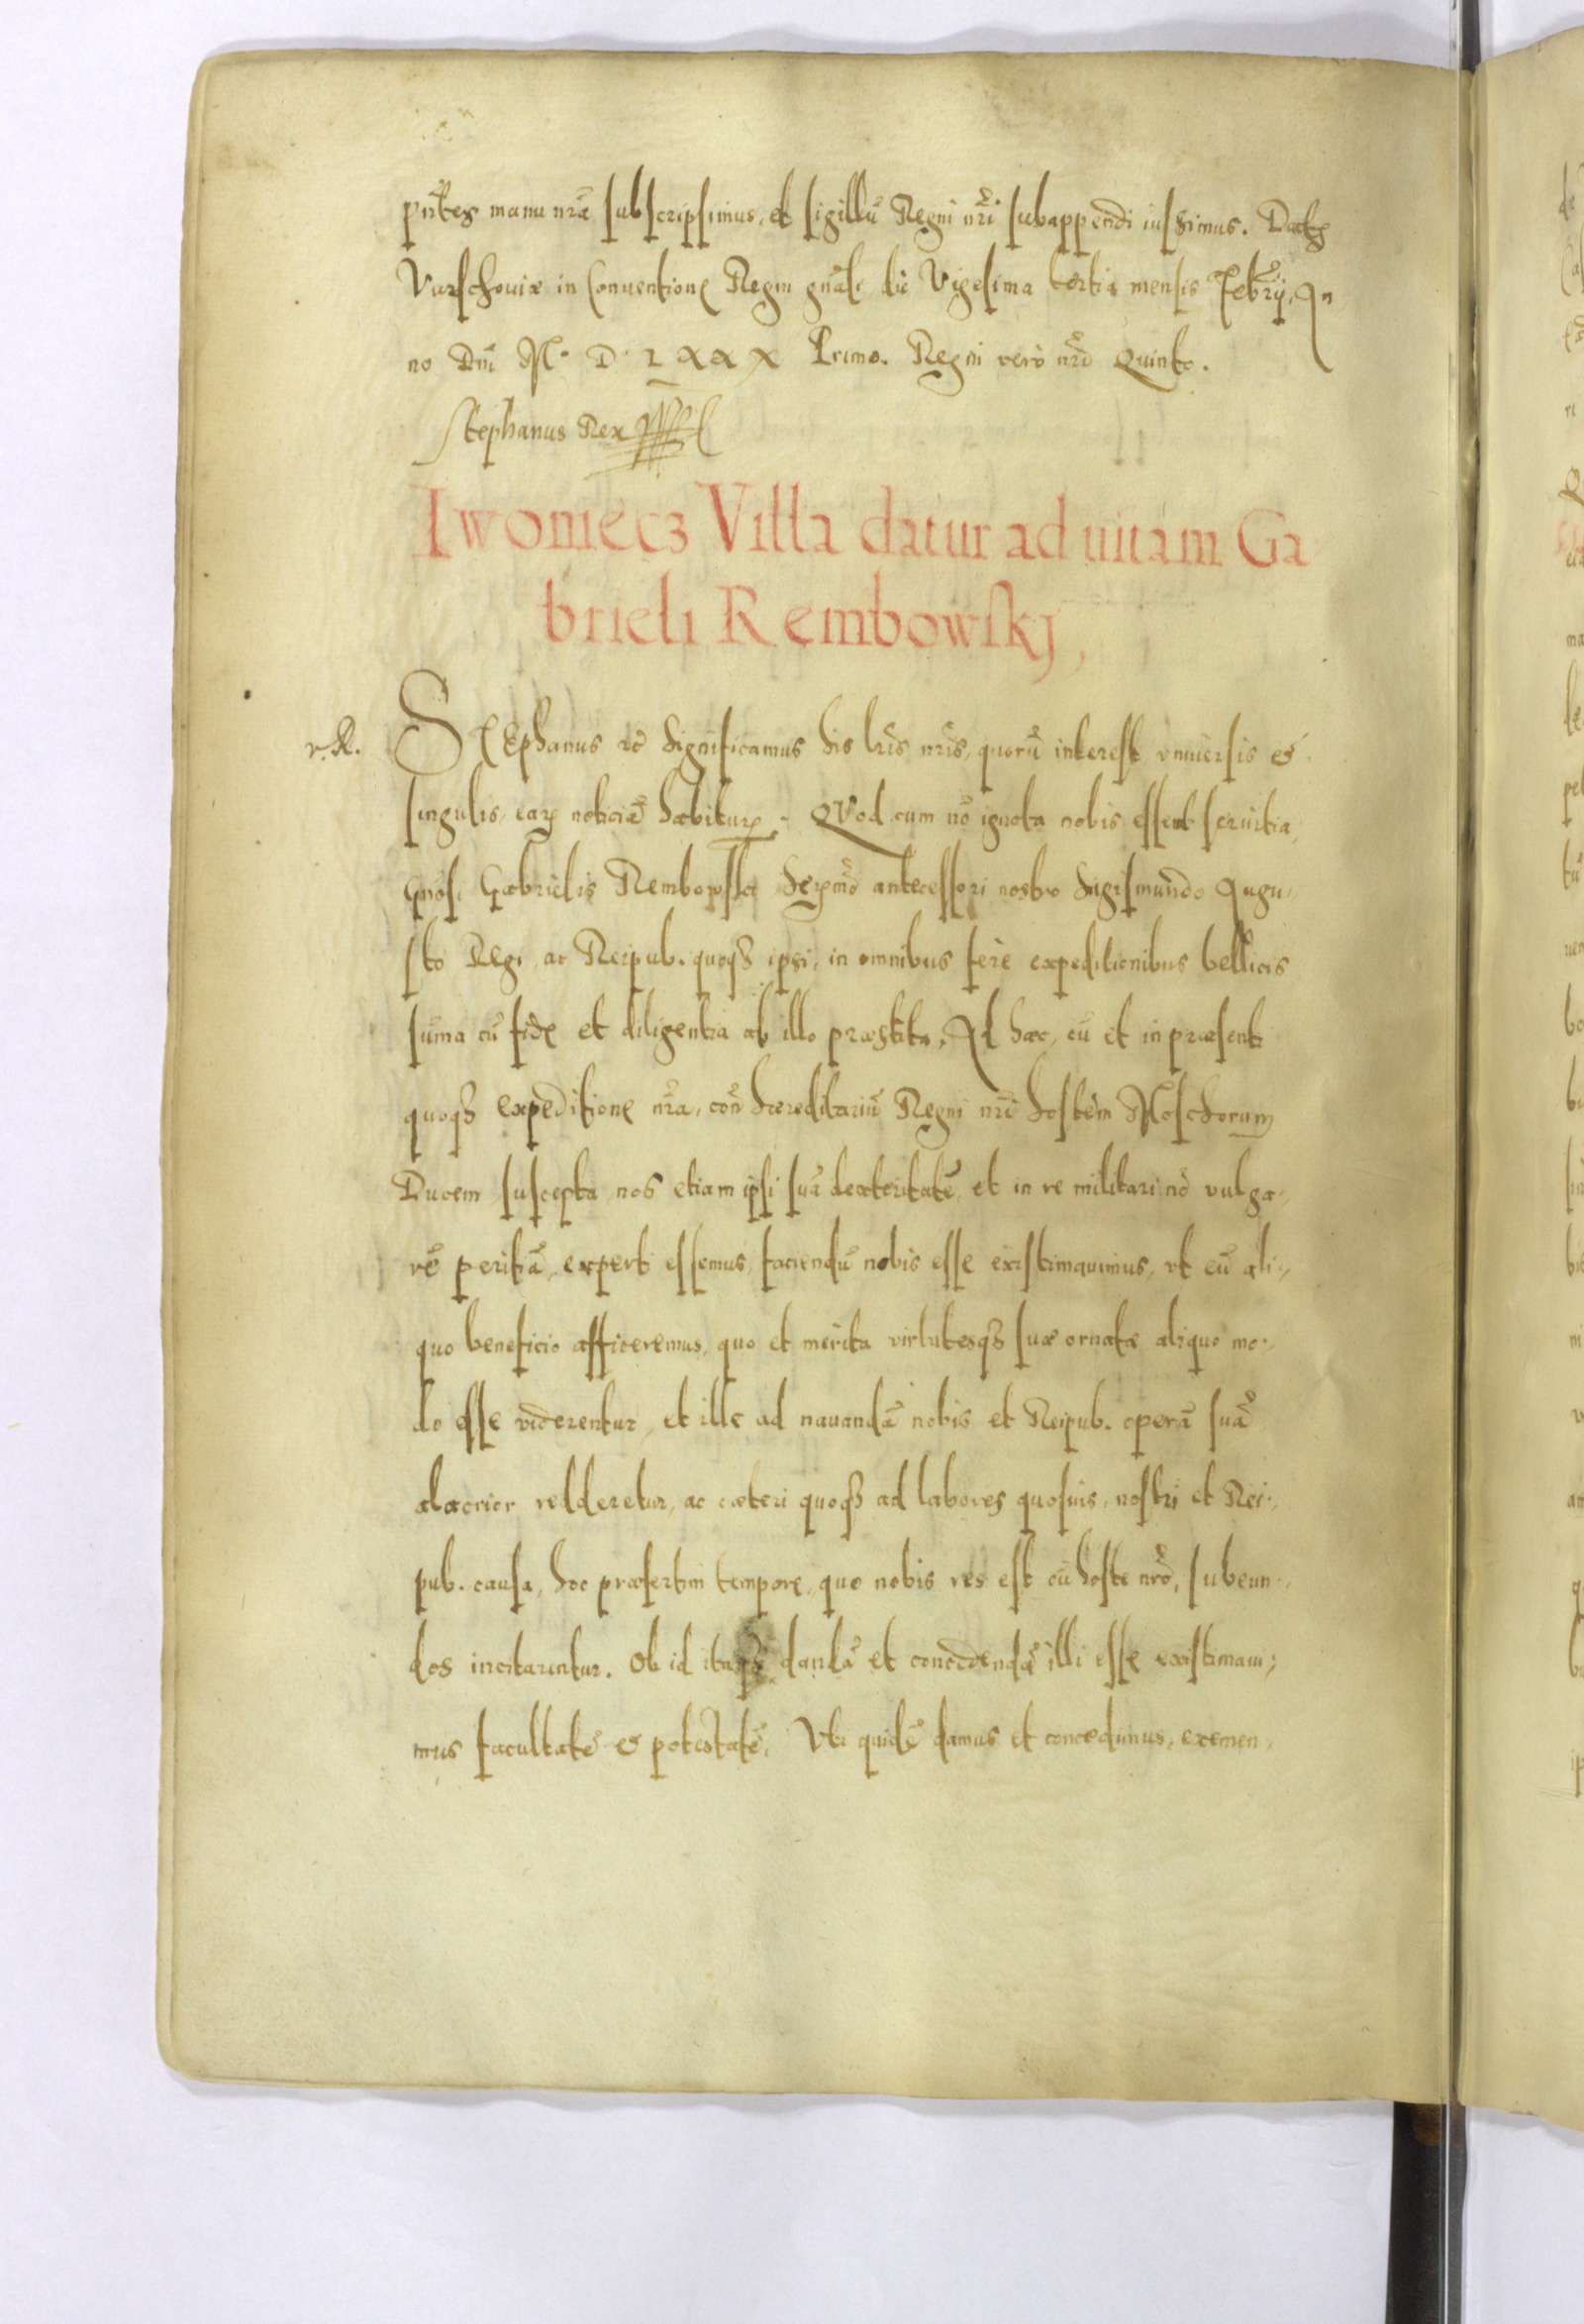 pn̄tes manu nrā subscripsimus, et sigillū Regni nr̄i subappendi iussimus. Datæ
Varschouiæ in Conuentione Regni gn̄ali die Vigesima tertia mensis Febrͬij, An
no Dn̄i Mº D LXXX Primo. Regni verò nr̄i Quinto.
Stephanus Rex
Iwoniecz Villa datur ad uitam Ga
brieli Rembowskj,
r. R.
STEphanus etc̄ Significamus his lr̄is nr̄is, quorū interest vniuersis &
singulis, earꝫ noticiā habiturꝫ. QVod cum nō ignota nobis essent seruitia,
Gnōsi Gabrielis Rembowski Serͫo antecessori nostro Sigismundo Augu,
sto Regi, ac Reipub. quoqꝫ ipsi, in omnibus ferè expeditionibus bellicis
sūma cū fide et diligentia ab illo præstita, At hac, cū et in præsenti
quoqꝫ expeditione nr̄a, con̄ hæreditariū Regni nr̄i hostem Moschorum
Ducem suscepta nos etiam ipsi suā dexteritatē, et in re militari nō vulga,
rē peritiā, experti essemus, faciendū nobis esse existimauimus, vt eū ali,
quo beneficio afficeremus, quo et merita virtutesqꝫ suæ ornatæ aliquo mo,
do esse viderentur, et ille ad nauandā nobis et Reipub. operā suā
alacrior redderetur, ac cæteri quoqꝫ ad labores quosuis, nostri et Rei,
pub. causa, hoc præsertim tempore, quo nobis res est cū hoste nr̄o, subeun,
dos incitarentur. Ob id itaqꝫ dandā et concedendā illi esse existimaui,
mus facultatē & potestatē, Vti quidē damus et concedimus, eximen,